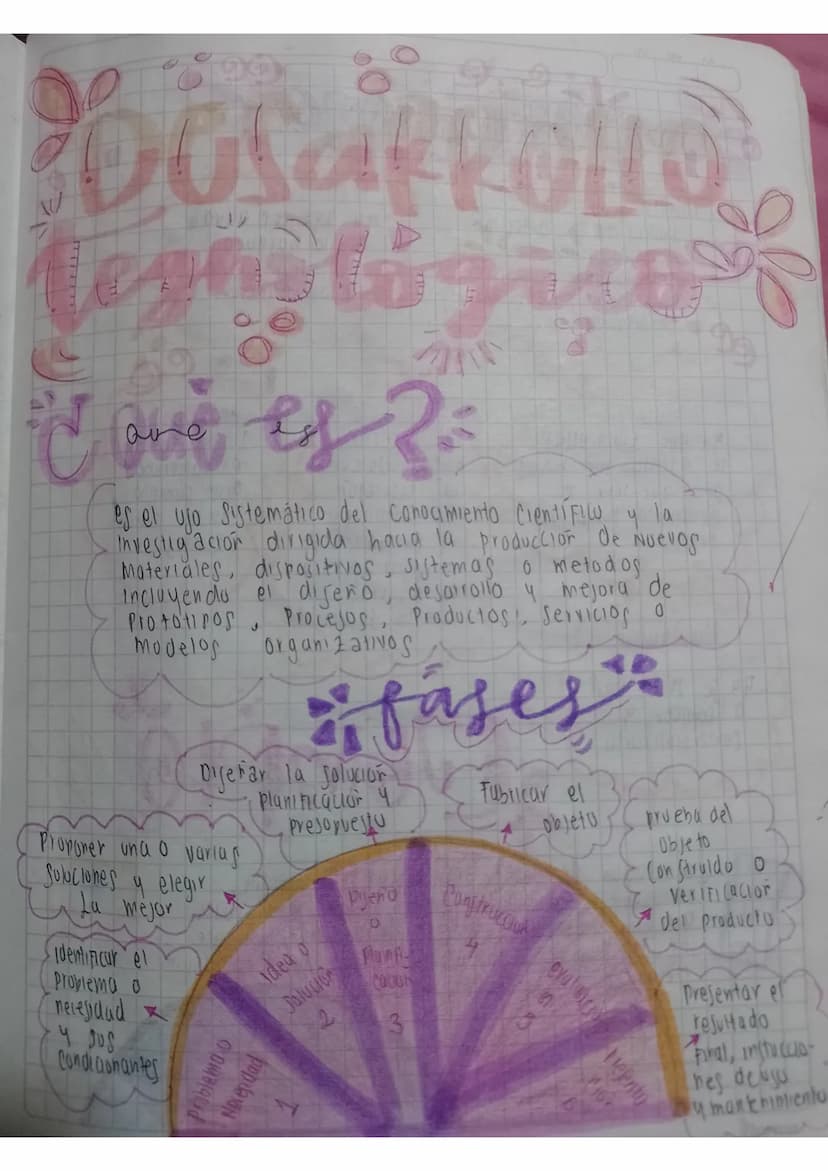 Desarrollo
tegnologico
¿Qué es?
que es
es el uso sistemático del conocimiento científico y la
investigación dirigida hacia la producción de nuevos
materiales, dispositivos, sistemas o metodos
incluyendo el diseño, desarrollo y mejora de
prototipos, procesos, productos, servicios o
modelos organizativos
fases
Diseñar la solución
planificación y
presopuesto
Fabricar el
objeto
prueba del
objeto
construido o
verificación
del producto
Proponer una o varias
soluciones y elegir
La mejor
Identificar el
problema o
necesidad
y sus
condicionantes
Presentar el
resultado
Final, instuccio-
nes de uso
y mantenimiento
Problema o
Necesidad
1
Idea o
Solución
2
Diseño
o
Planifi-
cación
3
Construcción
4
5
6